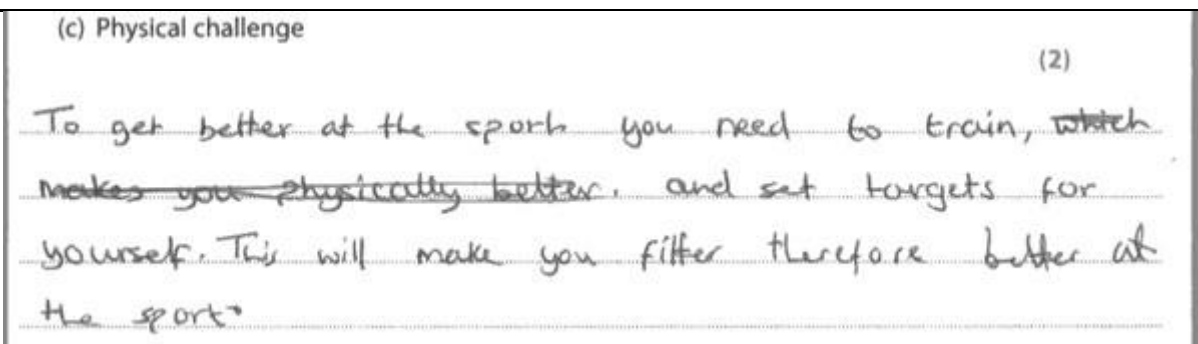 (c) Physical challenge
(2)
To get better at the sport you need to train, which
makes you physically better. and set targets for
yourself. This will make you fitter therefore better at
the sport.